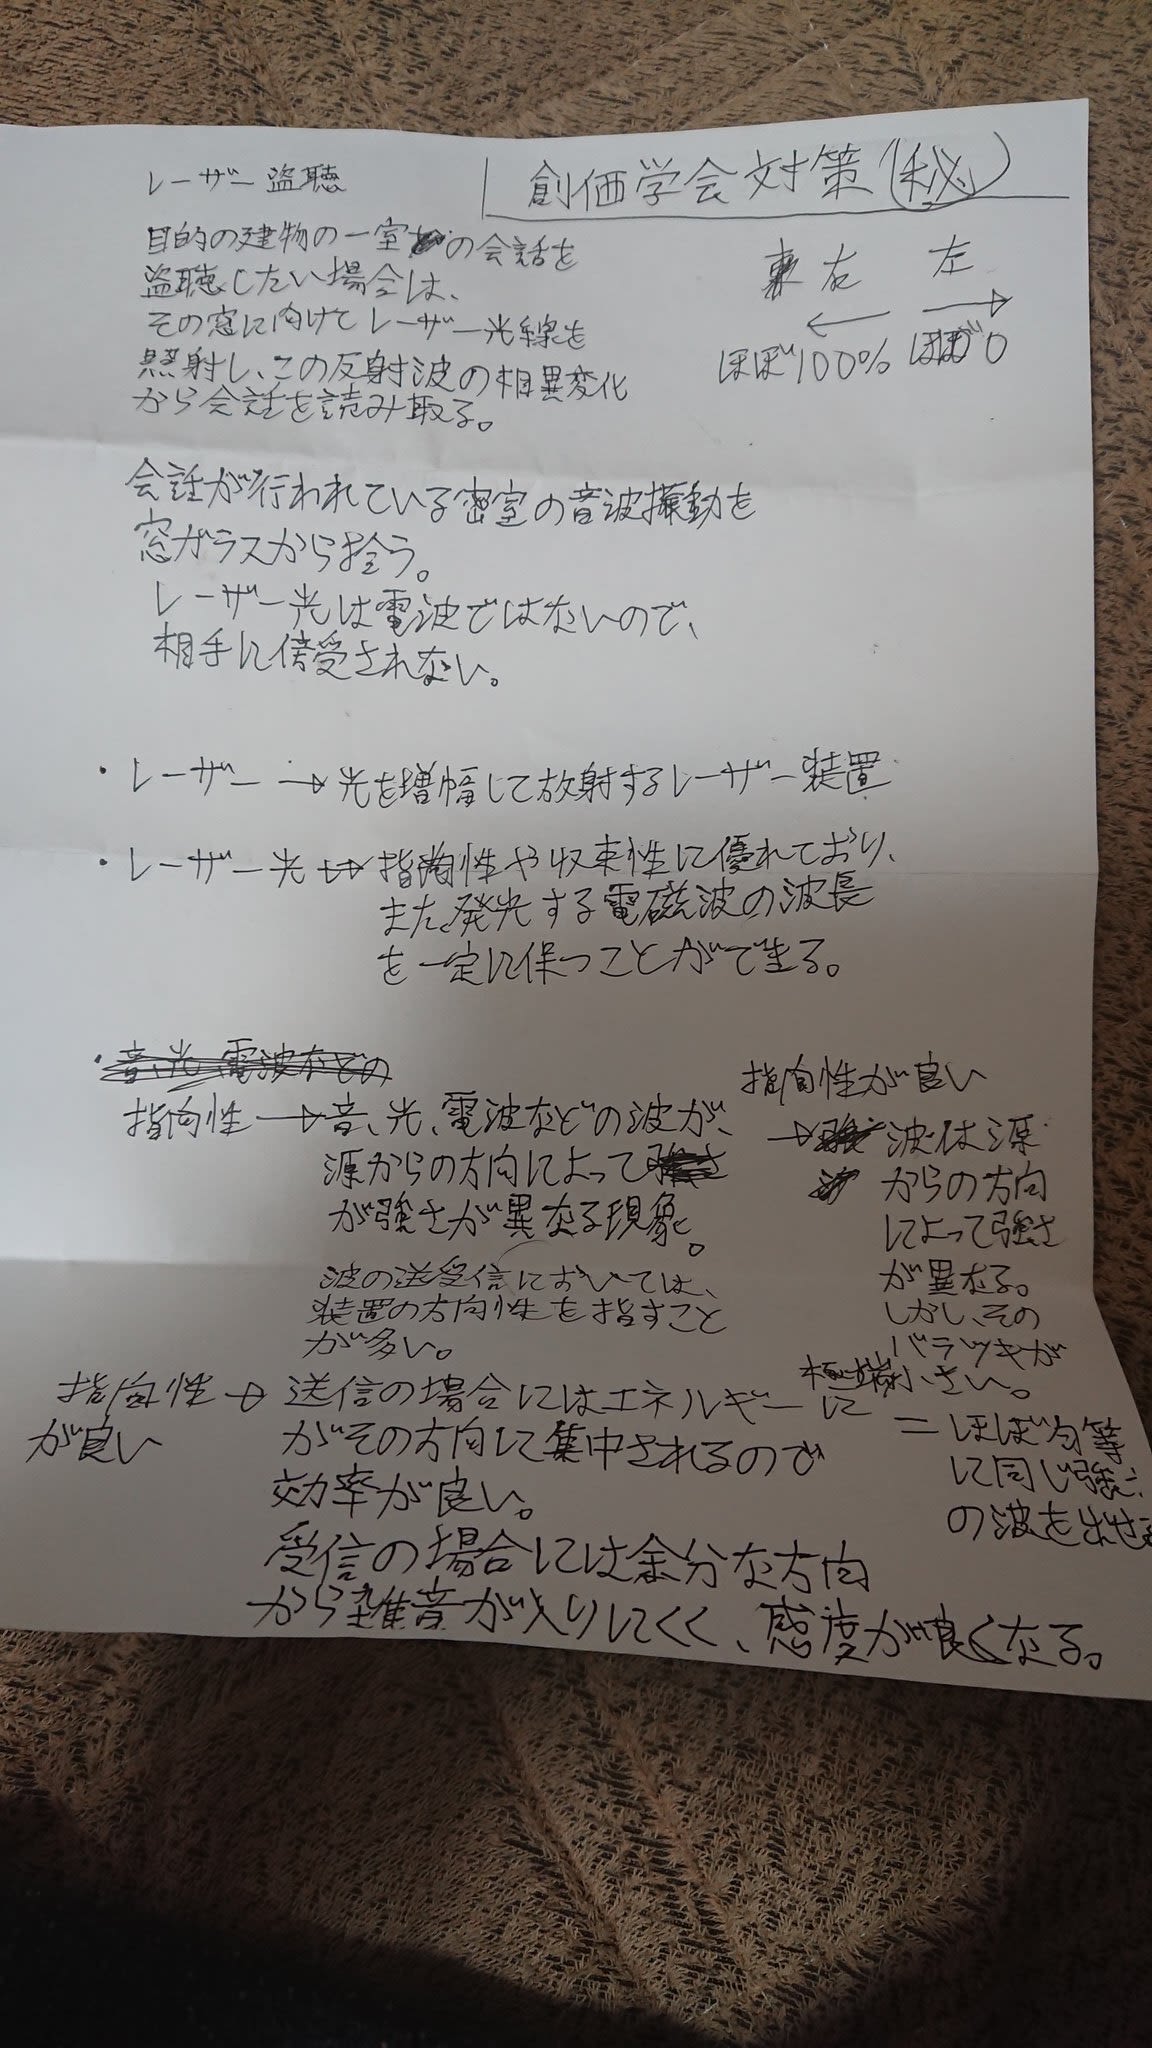 創価学会対策(秘)
レーザー盗聴
目的の建物の一室の会話を
盗聴したい場合は、
その窓に向けてレーザー光線を
照射し、この反射波の相異変化
から会話を読み取る。
右 左
← →
ほぼ100% ほぼ0
会話が行われている密室の音波振動を
窓ガラスから拾う。
レーザー光は電波ではないので、
相手に傍受されない。
・レーザー→光を増幅して放射するレーザー装置
・レーザー光→指向性や収束性に優れており、
また発光する電磁波の波長
を一定に保つことができる。
・音、光、電波などの
指向性→音、光、電波などの波が、
源からの方向によって
が強さが異なる現象。
波の送受信においては、
装置の方向性を指すこと
が多い。
指向性が良い
→波は源
からの方向
によって強さ
が異なる。
しかし、その
バラツキが
極端に小さい。
=ほぼ均等
に同じ強
の波を出せ
指向性→送信の場合にはエネルギー
が良い がその方向に集中されるので
効率が良い。
受信の場合には余分な方向
から雑音が入りにくく、感度が良くなる。